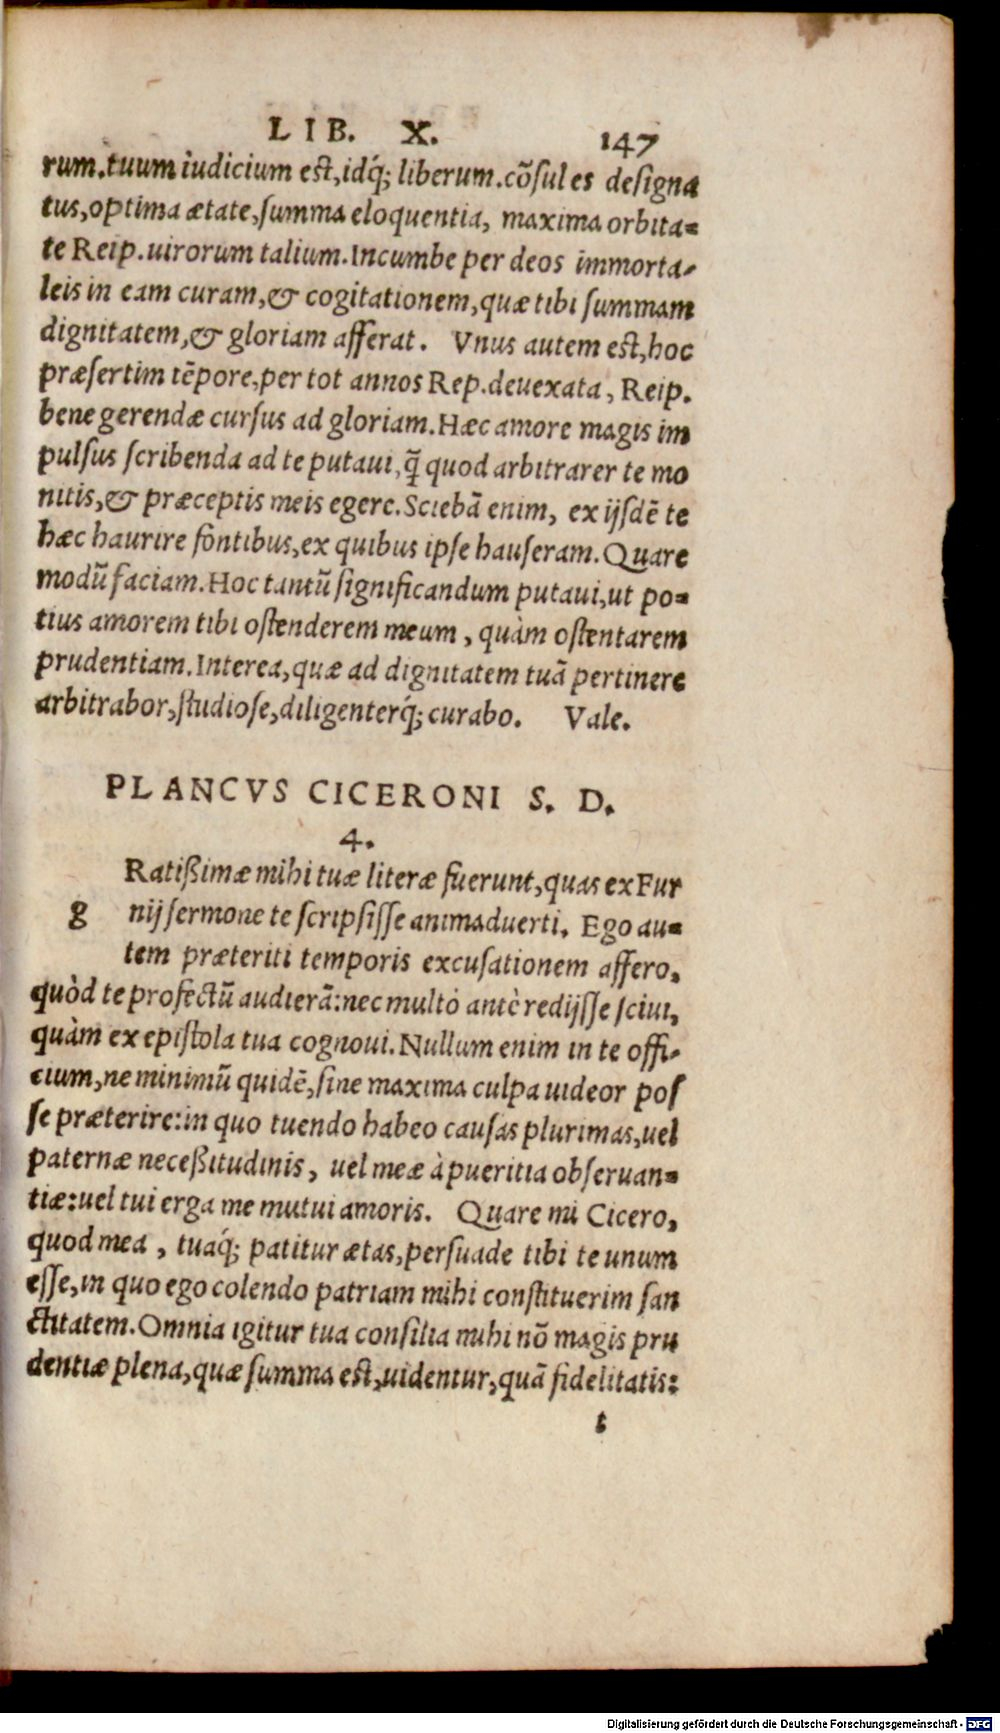 LIB. X. 147
rum.tuum iudicium est,idq́; liberum.cõsul es designa
tus,optima ætate,summa eloquentia, maxima orbita=
te Reip.uirorum talium.Incumbe per deos immorta-
leis in eam curam,& cogitationem,quæ tibi summam
dignitatem,& gloriam afferat. Vnus autem est,hoc
præsertim tẽpore,per tot annos Rep.deuexata, Reip.
bene gerendæ cursus ad gloriam.Hæc amore magis im
pulsus scribenda ad te putaui,q̃ quod arbitrarer te mo
nitis,& præceptis meis egere.Sciebã enim, ex ijsdẽ te
hæc haurire fontibus,ex quibus ipse hauseram.Quare
modũ faciam.Hoc tantũ significandum putaui,ut po=
tius amorem tibi ostenderem meum, quàm ostentarem
prudentiam.Interea,quæ ad dignitatem tuã pertinere
arbitrabor,studiose,diligenterq́; curabo. Vale.
PLANCVS CICERONI S. D.
4.
Ratißimæ mihi tuæ literæ fuerunt,quas ex Fur
g nij sermone te scripsisse animaduerti. Ego au=
tem præteriti temporis excusationem affero,
quòd te profectũ audierã:nec multò antè redijsse sciui,
quàm ex epistola tua cognoui.Nullum enim in te offi-
cium,ne minimũ quidẽ,sine maxima culpa uideor pos
se præterire:in quo tuendo habeo causas plurimas,uel
paternæ neceßitudinis, uel meæ à pueritia obseruan=
tiæ:uel tui erga me mutui amoris. Quare mi Cicero,
quod mea, tuaq́; patitur ætas,persuade tibi te unum
esse,in quo ego colendo patriam mihi constituerim san
ctitatem.Omnia igitur tua consilia mihi nõ magis pru
dentiæ plena,quæ summa est,uidentur,quã fidelitatis:
t
Digitalisierung gefördert durch die Deutsche Forschungsgemeinschaft - DFG